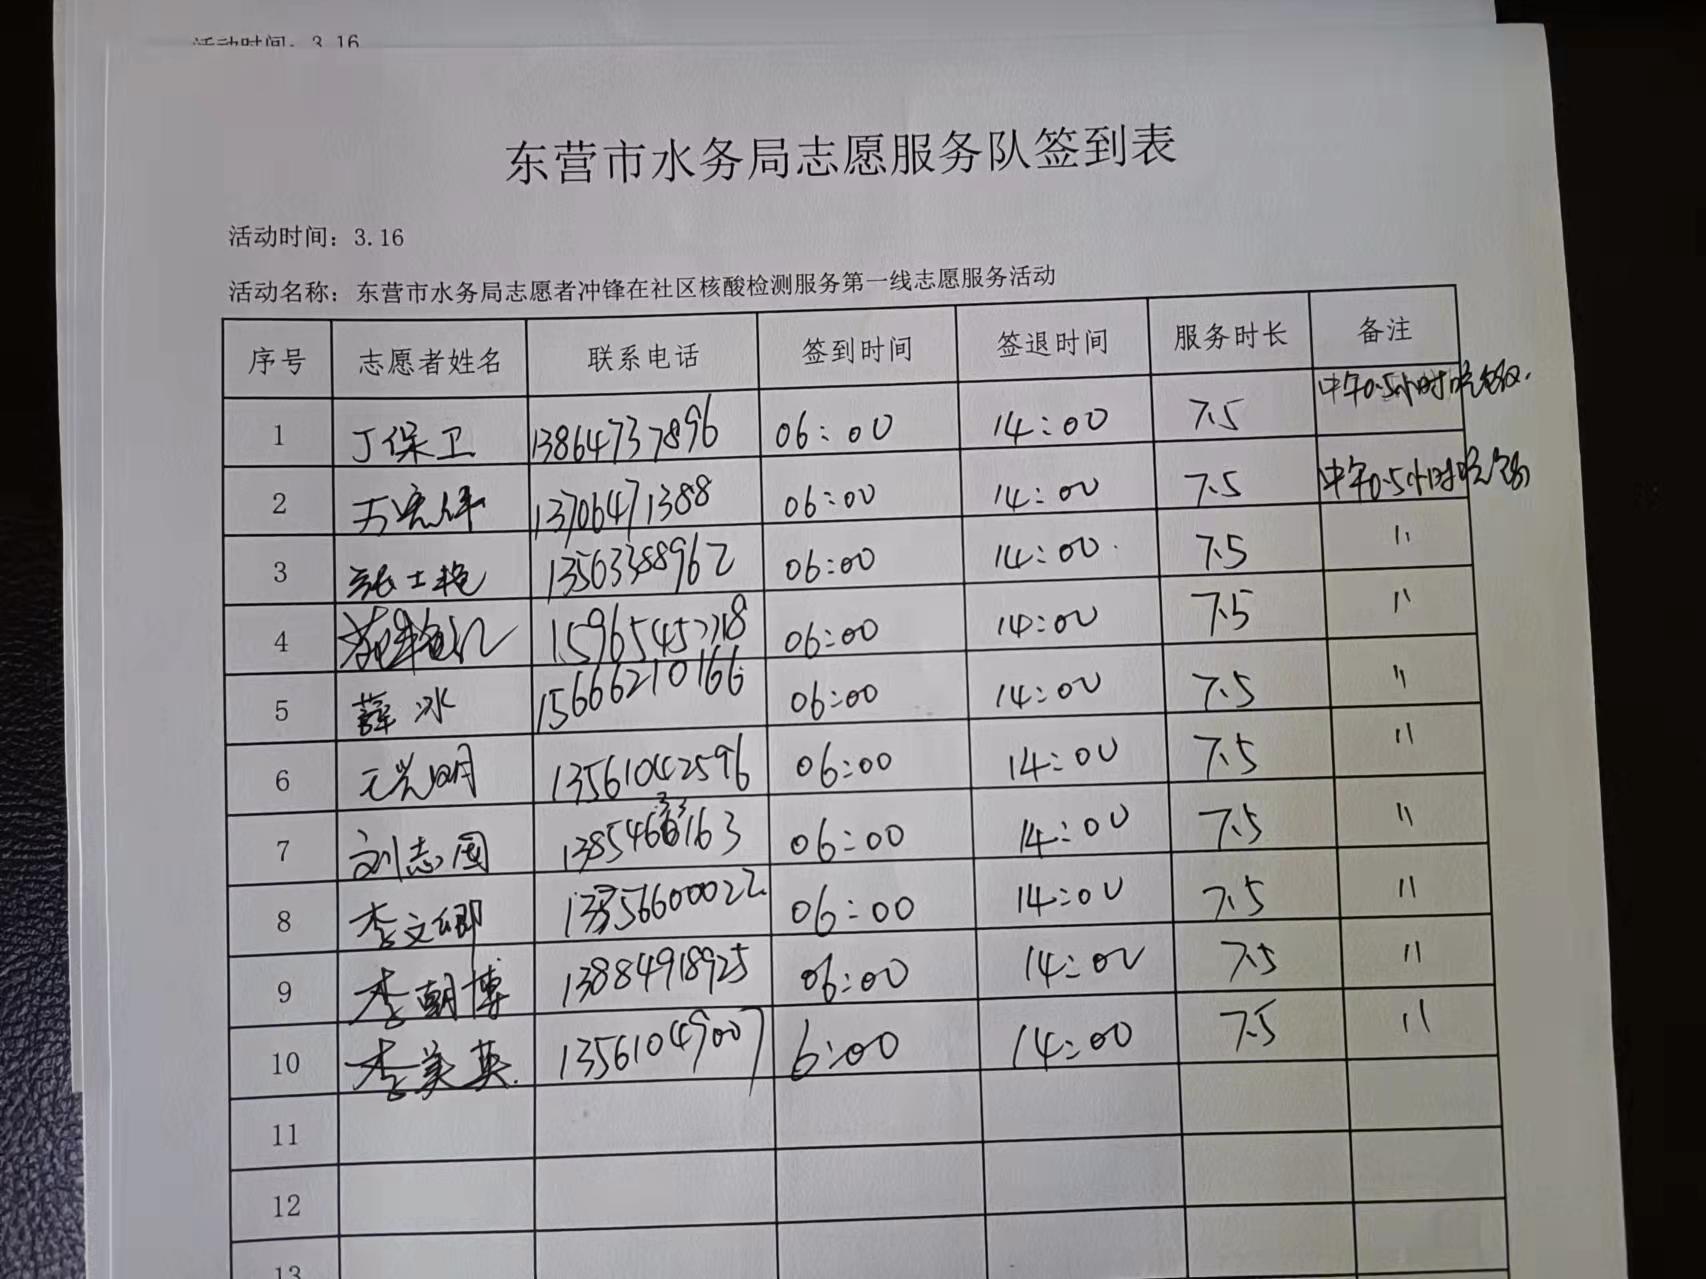 活动时间：3.16
东营市水务局志愿服务队签到表
活动时间：3.16
活动名称：东营市水务局志愿者冲锋在社区核酸检测服务第一线志愿服务活动
序号 志愿者姓名 联系电话 签到时间 签退时间 服务时长 备注
1 丁保卫 13864737896 06:00 14:00 7.5 中午0.5小时吃饭.
2 13706471388 06:00 14:00 7.5 中午0.5小时吃饭
3 张士艳 13563388962 06:00 14:00 7.5 〃
4 06:00 14:00 7.5 〃
5 薛冰 15666210166 06:00 14:00 7.5 〃
6 元光明 13561042596 06:00 14:00 7.5 〃
7 刘志国 06:00 14:00 7.5 〃
8 李文卿 06:00 14:00 7.5 〃
9 李朝博 13884918925 06:00 14:00 7.5 〃
10 李美英 13561049007 6:00 14:00 7.5 〃
11
12
13